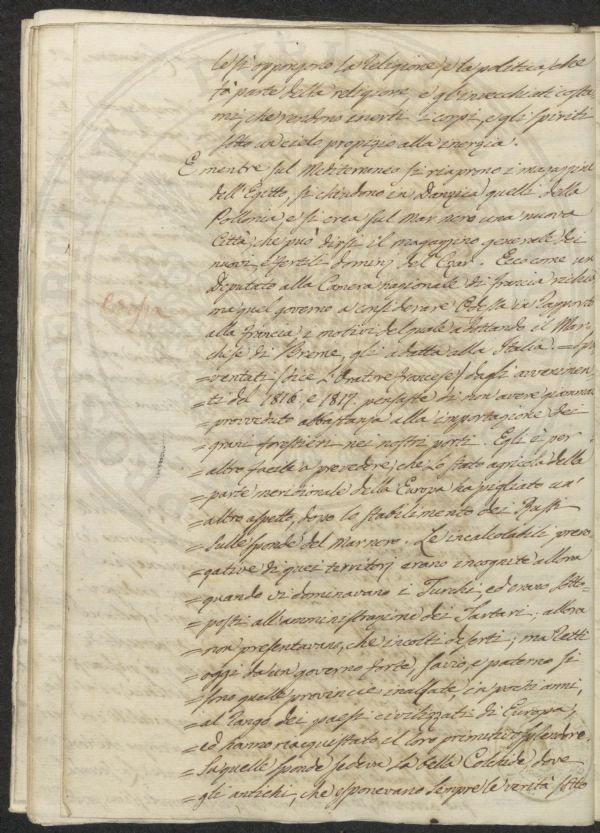 le si oppongono la Religione, e la politica, che
fà parte della religione, e gl'invecchiati costu
mi, che rendono inerti i corpi, e gli spiriti
sotto un cielo propizio alla inerzia.
E mentre sul Mediterraneo si riaprono i magazzini
dell'Egitto, si chiudono in Danzica quelli della
Pollonia, e si crea sul Mar nero una nuova
Città, che può dirsi il magazzino generale dei
nuovi, e fertili dominj del Czar. Ecco come un
Deputato alla Camera nazionale di francia richia
ma quel governo a considerare Odessa in rapporto
alla francia, i motivi del quale adottando il Mar-
chese di Breme, gli adatta alla Italia. = Spa
= ventati (dice l'Oratore francese) dagli avvenimen
= ti del 1816. e 1817. pensaste di non avere giammai
= provveduto abbastanza alla importazione dei
= grani forestieri nei nostri porti. Egli è per
= altro facile a prevedere, che lo stato agricolo della
= parte meridionale della Europa ha pigliato un'
= altro aspetto, dopo lo stabilimento dei Russi
= sulle sponde del Mar nero. Le incalcolabili prero
= gative di quei territorj erano incognite allora
= quando vi dominavano i Turchi, ed erano sotto-
= posti all'amministrazione dei Tartari; allora
= non presentavano, che incolti deserti; ma retti
= oggi da un governo forte, savio, e paterno si
= sono quelle provincie inalzate in pochi anni,
= al rango dei paesi civilizzati di Europa,
= ed hanno riacquistato il loro primitivo splendore.
= Su quelle sponde sedeva la bella Colchide, dove
= gli antichi, che esponevano sempre le verità sotto
Odessa